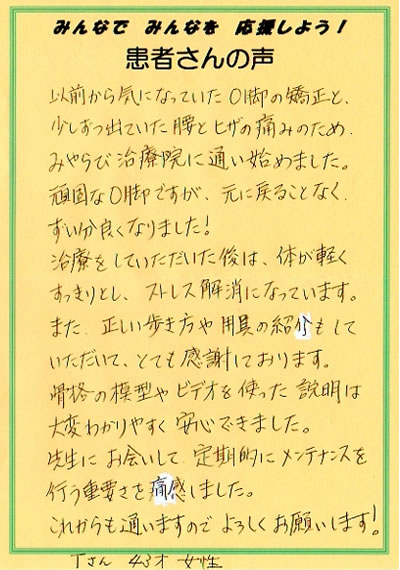 みんなで みんなを 応援しよう！
患者さんの声
以前から気になっていたO脚の矯正と、
少しずつ出ていた腰とヒザの痛みのため、
みやらび治療院に通い始めました。
頑固なO脚ですが、元に戻ることなく、
ずい分良くなりました！
治療をしていただいた後は、体が軽く
すっきりとし、ストレス解消になっています。
また、正しい歩き方や用具の紹介もして
いただいて、とても感謝しております。
骨格の模型やビデオを使った説明は
大変わかりやすく安心できました。
先生にお会いして、定期的にメンテナンスを
行う重要さを痛感しました。
これからも通いますのでよろしくお願いします！
Tさん 43才 女性